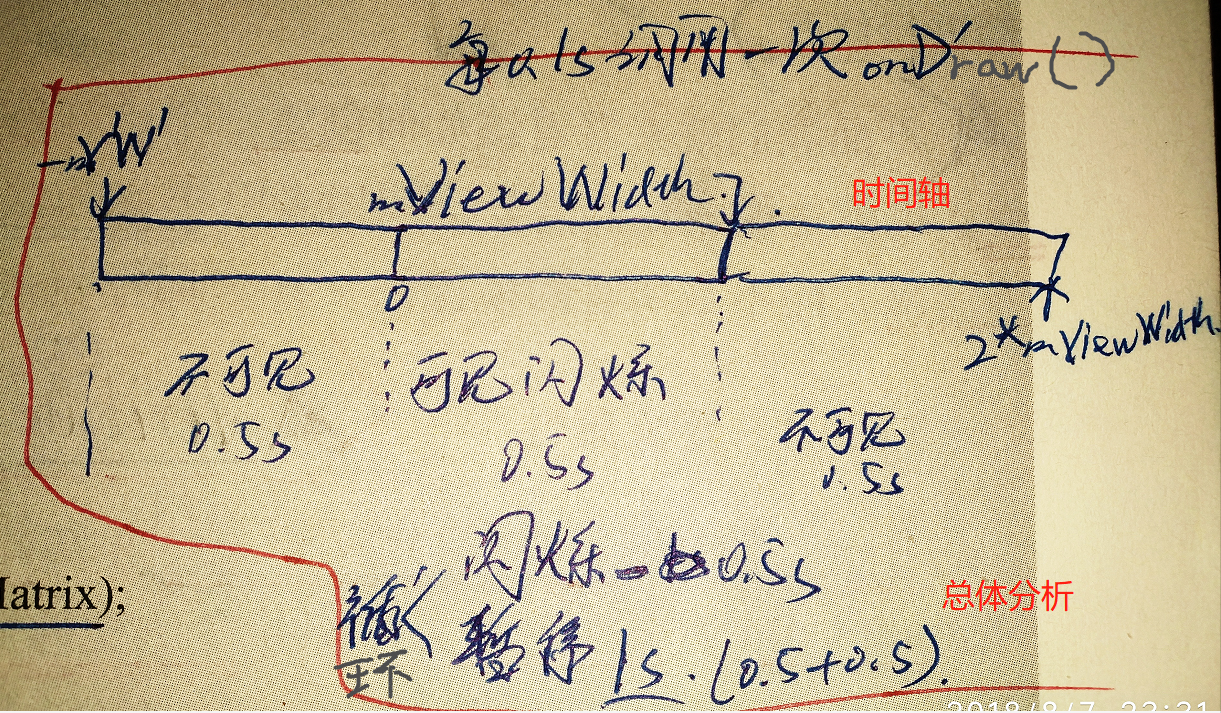 每0.1s调用一次onDraw()
-mVW
mViewWidth
时间轴
0
2*mViewWidth
不可见
0.5s
可见闪烁
0.5s
不可见
0.5s
闪烁 0.5s
循环
暂停1s.(0.5+0.5).
总体分析
Matrix);
2018/8/7 23:31